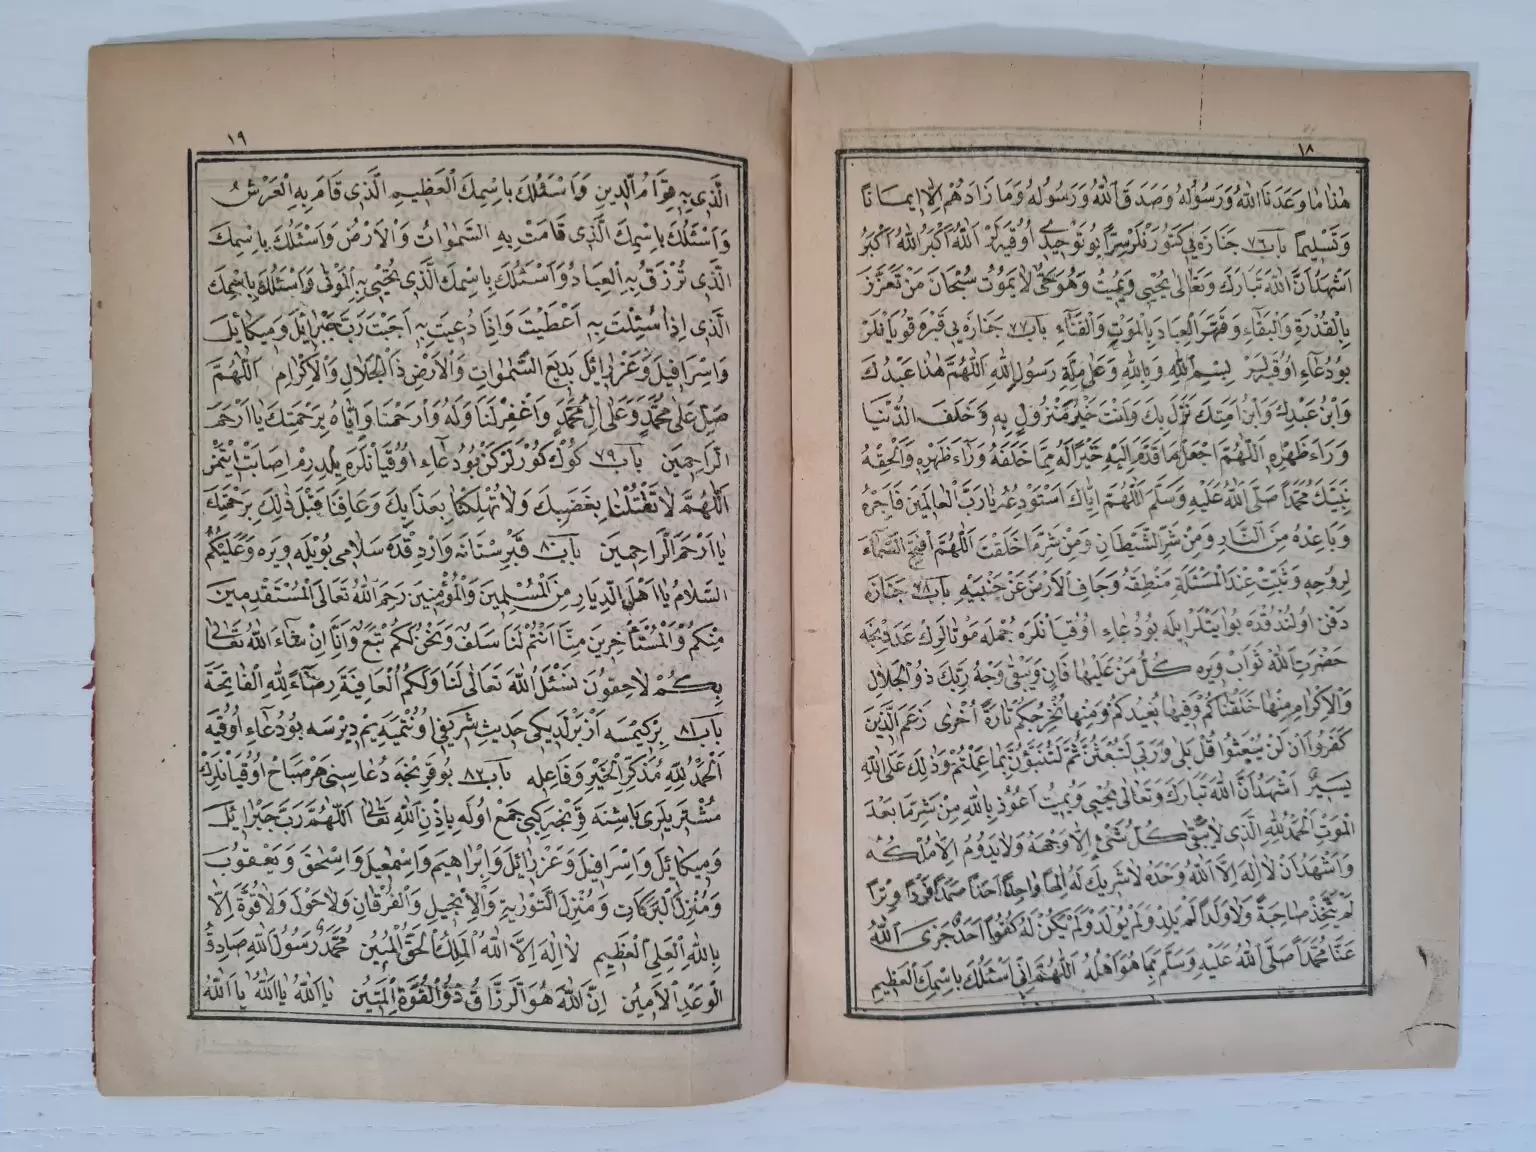 ١٨
هٰذَا مَا وَعَدَنَا اللّٰهُ وَرَسُولُهُ وَصَدَقَ اللّٰهُ وَرَسُولُهُ وَمَا زَادَهُمْ اِلَّا اِيمَانًا
وَتَسْلِيمًا بَابْ ٧٦ جَنَازَه يِي كَتُورَنْلَرْ سِرًّا بُو تَوْحِيدِي اُوقُيَهلَرْ اَللّٰهُ اَكْبَرُ اَللّٰهُ اَكْبَرُ
اَشْهَدُ اَنَّ اللّٰهَ تَبَارَكَ وَتَعَالٰى يُحْيِي وَيُمِيتُ وَهُوَ حَيٌّ لَا يَمُوتُ سُبْحَانَ مَنْ تَعَزَّزَ
بِالْقُدْرَةِ وَالْبَقَاءِ وَقَهَرَ الْعِبَادَ بِالْمَوْتِ وَالْفَنَاءِ بَابْ ٧٧ جَنَازَه يِي قَبْرَه قُويَانْلَرْ
بُو دُعَاءِ اُوقُيَهلَرْ بِسْمِ اللّٰهِ وَبِاللّٰهِ وَعَلٰى مِلَّةِ رَسُولِ اللّٰهِ اَللّٰهُمَّ هٰذَا عَبْدُكَ
وَابْنُ عَبْدِكَ وَابْنُ اَمَتِكَ نَزَلَ بِكَ وَاَنْتَ خَيْرُ مَنْزُولٍ بِهِ وَخَلَفَ الدُّنْيَا
وَرَاءَ ظَهْرِهِ اَللّٰهُمَّ اجْعَلْ مَا قَدَّمَ اِلَيْهِ خَيْرًا لَهُ مِمَّا خَلَفَهُ وَرَاءَ ظَهْرِهِ وَاَلْحِقْهُ
نَبِيَّكَ مُحَمَّدًا صَلَّى اللّٰهُ عَلَيْهِ وَسَلَّمَ اَللّٰهُمَّ اِيَّاكَ اَسْتَوْدِعُهُ يَا رَبَّ الْعَالَمِينَ فَاَجِرْهُ
وَبَاعِدْهُ مِنَ النَّارِ وَمِنْ شَرِّ الشَّيْطَانِ وَمِنْ شَرِّ مَا خَلَقْتَ اَللّٰهُمَّ افْتَحِ السَّمَاءَ
لِرُوحِهِ وَثَبِّتْ عِنْدَ الْمَسْئَلَةِ مَنْطِقَهُ وَجَافِ الْاَرْضَ عَنْ جَنْبَيْهِ بَابْ ٧٨ جَنَازَه
دَفْنْ اُولُنْدُقْدَه بُو اٰيَتْلَرْ اِيلَه بُو دُعَاءِ اُوقُيَانْلَرَه جُمْلَه مَوْتَالَرِكْ عَدَدِنْجَه
حَضْرَتِ اللّٰه ثَوَابْ وِيرَه كُلُّ مَنْ عَلَيْهَا فَانٍ وَيَبْقٰى وَجْهُ رَبِّكَ ذُو الْجَلَالِ
وَالْاِكْرَامِ مِنْهَا خَلَقْنَاكُمْ وَفِيهَا نُعِيدُكُمْ وَمِنْهَا نُخْرِجُكُمْ تَارَةً اُخْرٰى زَعَمَ الَّذِينَ
كَفَرُوا اَنْ لَنْ يُبْعَثُوا قُلْ بَلٰى وَرَبِّي لَتُبْعَثُنَّ ثُمَّ لَتُنَبَّؤُنَّ بِمَا عَمِلْتُمْ وَذٰلِكَ عَلَى اللّٰهِ
يَسِيرٌ اَشْهَدُ اَنَّ اللّٰهَ تَبَارَكَ وَتَعَالٰى يُحْيِي وَيُمِيتُ اَعُوذُ بِاللّٰهِ مِنْ شَرِّ مَا بَعْدَ
الْمَوْتِ اَلْحَمْدُ لِلّٰهِ الَّذِي لَا يَبْقٰى كُلُّ شَيْءٍ اِلَّا وَجْهَهُ وَلَا يَدُومُ اِلَّا مُلْكُهُ
وَاَشْهَدُ اَنْ لَا اِلٰهَ اِلَّا اللّٰهُ وَحْدَهُ لَا شَرِيكَ لَهُ اِلٰهًا وَاحِدًا اَحَدًا صَمَدًا فَرْدًا وِتْرًا
لَمْ يَتَّخِذْ صَاحِبَةً وَلَا وَلَدًا لَمْ يَلِدْ وَلَمْ يُولَدْ وَلَمْ يَكُنْ لَهُ كُفُوًا اَحَدٌ جَزَى اللّٰهُ
عَنَّا مُحَمَّدًا صَلَّى اللّٰهُ عَلَيْهِ وَسَلَّمَ بِمَا هُوَ اَهْلُهُ اَللّٰهُمَّ اِنِّي اَسْئَلُكَ بِاسْمِكَ الْعَظِيمِ
١٩
الَّذِي بِهِ قِوَامُ الدِّينِ وَاَسْئَلُكَ بِاسْمِكَ الْعَظِيمِ الَّذِي قَامَ بِهِ الْعَرْشُ
وَاَسْئَلُكَ بِاسْمِكَ الَّذِي قَامَتْ بِهِ السَّمٰوَاتُ وَالْاَرْضُ وَاَسْئَلُكَ بِاسْمِكَ
الَّذِي تُرْزَقُ بِهِ الْعِبَادُ وَاَسْئَلُكَ بِاسْمِكَ الَّذِي يُحْيِي بِهِ الْمَوْتٰى وَاَسْئَلُكَ بِاسْمِكَ
الَّذِي اِذَا سُئِلْتَ بِهِ اَعْطَيْتَ وَاِذَا دُعِيتَ بِهِ اَجَبْتَ رَبَّ جَبْرَائِلَ وَمِيكَائِلَ
وَاِسْرَافِيلَ وَعَزْرَائِلَ بَدِيعَ السَّمٰوَاتِ وَالْاَرْضِ ذَا الْجَلَالِ وَالْاِكْرَامِ اَللّٰهُمَّ
صَلِّ عَلٰى مُحَمَّدٍ وَعَلٰى اٰلِ مُحَمَّدٍ وَاغْفِرْ لَنَا وَلَهُ وَارْحَمْنَا وَاِيَّاهُ بِرَحْمَتِكَ يَا اَرْحَمَ
الرَّاحِمِينَ بَابْ ٧٩ كُوكْ كُورْلَرْكَنْ بُو دُعَاءِ اُوقُيَانْلَرَه يِلْدِرِمْ اِصَابَتْ اِيتْمَزْ
اَللّٰهُمَّ لَا تَقْتُلْنَا بِغَضَبِكَ وَلَا تُهْلِكْنَا بِعَذَابِكَ وَعَافِنَا قَبْلَ ذٰلِكَ بِرَحْمَتِكَ
يَا اَرْحَمَ الرَّاحِمِينَ بَابْ ٨٠ قَبْرِسْتَانَه وَارْدِقْدَه سَلَامِي بُويْلَه وِيرَه وَعَلَيْكُمُ
السَّلَامُ يَا اَهْلَ الدِّيَارِ مِنَ الْمُسْلِمِينَ وَالْمُؤْمِنِينَ رَحِمَ اللّٰهُ تَعَالَى الْمُسْتَقْدِمِينَ
مِنْكُمْ وَالْمُسْتَأْخِرِينَ مِنَّا اَنْتُمْ لَنَا سَلَفٌ وَنَحْنُ لَكُمْ تَبَعٌ وَاِنَّا اِنْ شَاءَ اللّٰهُ تَعَالٰى
بِكُمْ لَاحِقُونَ نَسْئَلُ اللّٰهَ تَعَالٰى لَنَا وَلَكُمُ الْعَافِيَةَ رِضَاءً لِلّٰهِ الْفَاتِحَة
بَابْ ٨١ بِرْ كِيمْسَه اَزْبَرْلَدِيكِي حَدِيثِ شَرِيفِي اُونُتْمَيَه يِمْ دِيرْسَه بُو دُعَاءِ اُوقُيَه
اَلْحَمْدُ لِلّٰهِ مُذَكِّرِ الْخَيْرِ وَفَاعِلِهِ بَابْ ٨٢ بُو قَرِنْجَه دُعَاسِنِي هَرْ صَبَاحْ اُوقُيَانْلَرِكْ
مُشْتَرِيلَرِي بَاشِنَه قَرِنْجَه كِبِي جَمْعْ اُولَه بِاِذْنِ اللّٰهِ تَعَالٰى اَللّٰهُمَّ رَبَّ جَبْرَائِلَ
وَمِيكَائِلَ وَاِسْرَافِيلَ وَعَزْرَائِلَ وَاِبْرَاهِيمَ وَاِسْمٰعِيلَ وَاِسْحٰقَ وَيَعْقُوبَ
وَمُنْزِلَ الْبَرَكَاتِ وَمُنْزِلَ التَّوْرٰيةِ وَالْاِنْجِيلِ وَالْفُرْقَانِ وَلَا حَوْلَ وَلَا قُوَّةَ اِلَّا
بِاللّٰهِ الْعَلِيِّ الْعَظِيمِ لَا اِلٰهَ اِلَّا اللّٰهُ الْمَلِكُ الْحَقُّ الْمُبِينُ مُحَمَّدٌ رَسُولُ اللّٰهِ صَادِقُ
الْوَعْدِ الْاَمِينُ اِنَّ اللّٰهَ هُوَ الرَّزَّاقُ ذُو الْقُوَّةِ الْمَتِينُ يَا اَللّٰهُ يَا اَللّٰهُ يَا اَللّٰهُ